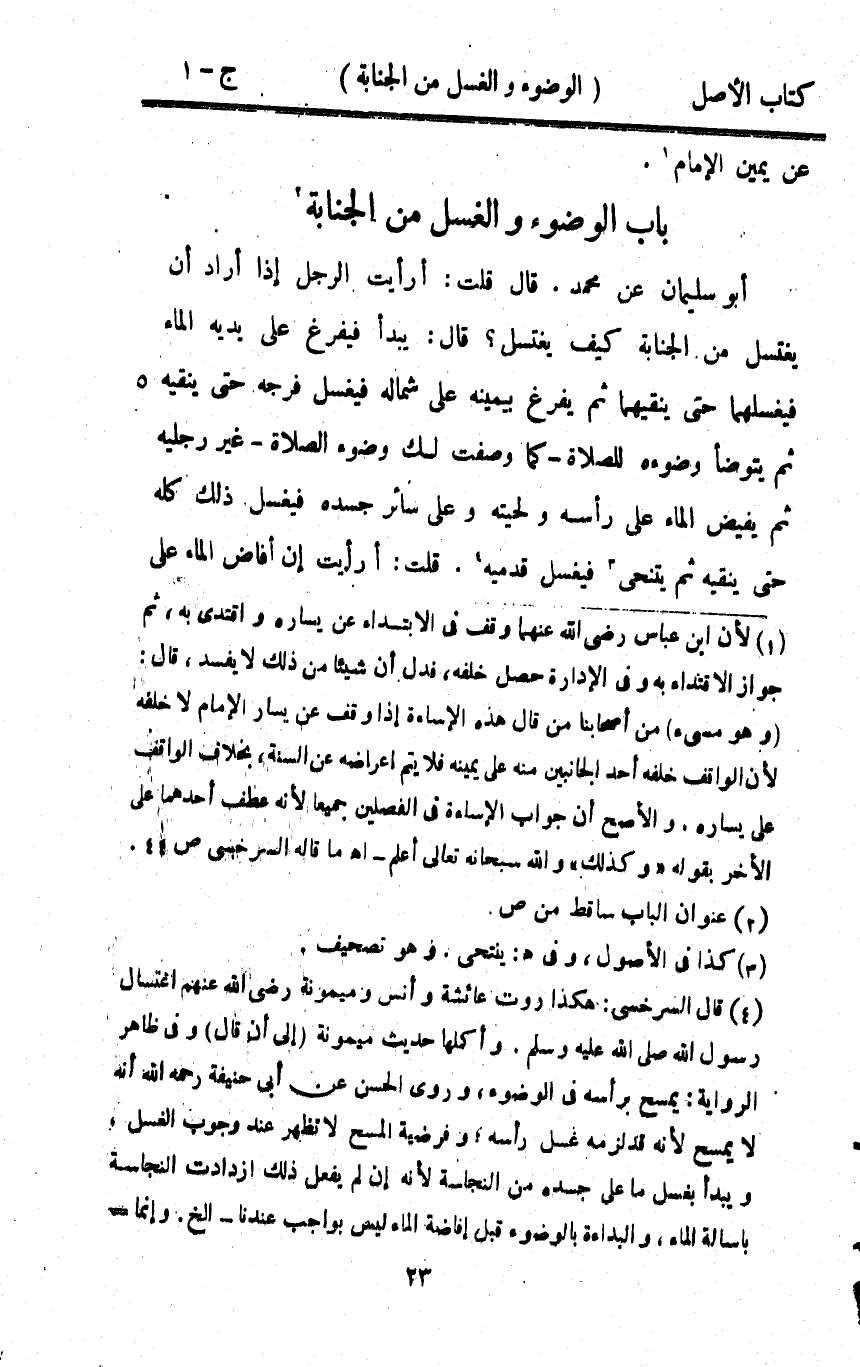 كتاب الأصل ( الوضوء و الغسل من الجنابة ) ج - ١
عن يمين الإمام ١ .
باب الوضوء و الغسل من الجنابة ٢
أبو سليمان عن محمد . قال قلت : أرأيت الرجل إذا أراد أن
يغتسل من الجنابة كيف يغتسل ؟ قال : يبدأ فيفرغ على يديه الماء
فيغسلهما حتى ينقيهما ثم يفرغ بيمينه على شماله فيغسل فرجه حتى ينقيه ٥
ثم يتوضأ وضوءه للصلاة - كما وصفت لك وضوء الصلاة - غير رجليه
ثم يفيض الماء على رأسه و لحيته و على سائر جسده فيغسل ذلك كله
حتى ينقيه ثم يتنحى ٣ فيغسل قدميه ٤ . قلت : أرأيت إن أفاض الماء على
(١) لأن ابن عباس رضى الله عنهما وقف فى الابتداء عن يساره و اقتدى به ، ثم
جواز الاقتداء به و فى الإدارة حصل خلفه ، فدل أن شيئا من ذلك لا يفسد ، قال :
(و هو مسىء) من أصحابنا من قال هذه الإساءة إذا وقف عن يسار الإمام لا خلفه
لأن الواقف خلفه أحد الجانبين منه على يمينه فلا يتم اعراضه عن السنة ، بخلاف الواقف
على يساره . و الأصح أن جواب الإساءة فى الفصلين جميعا لأنه عطف أحدهما على
الأخر بقوله « و كذلك » و الله سبحانه تعالى أعلم - اه ما قاله السرخسى ص ٤٤ .
(٢) عنوان الباب ساقط من ص .
(٣) كذا فى الأصول ، و فى ه : ينتحى . و هو تصحيف .
(٤) قال السرخسى : هكذا روت عائشة و أنس و ميمونة رضى الله عنهم اغتسال
رسول الله صلى الله عليه و سلم . و أكملها حديث ميمونة (إلى أن قال) و فى ظاهر
الرواية : يمسح برأسه فى الوضوء ، و روى الحسن عن أبى حنيفة رحمه الله أنه
لا يمسح لأنه قد لزمه غسل رأسه ؛ و فرضية المسح لا تظهر عند وجوب الغسل ،
و يبدأ بغسل ما على جسده من النجاسة لأنه إن لم يفعل ذلك ازدادت النجاسة
باسالة الماء ، و البداءة بالوضوء قبل إفاضة الماء ليس بواجب عندنا - الخ . و إنما =
٢٣